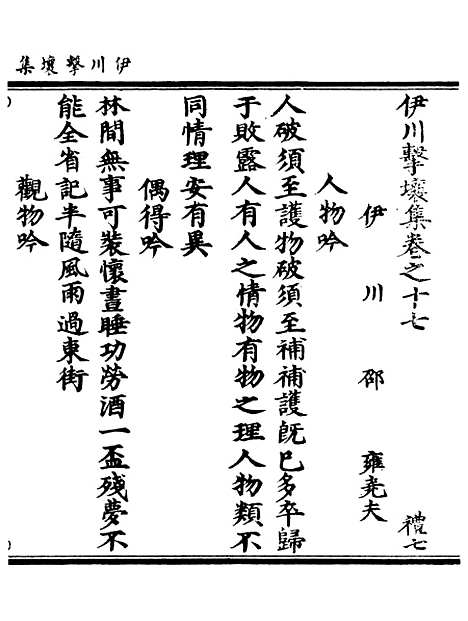 伊川擊壤集
伊川擊壤集卷之十七 禮七
伊川邵雍堯夫
人物吟
人破須至護物破須至補補護既已多卒歸
于敗露人有人之情物有物之理人物類不
同情理安有異
偶得吟
林間無事可裝懷晝睡功勞酒一盃殘夢不
能全省記半隨風雨過東街
觀物吟